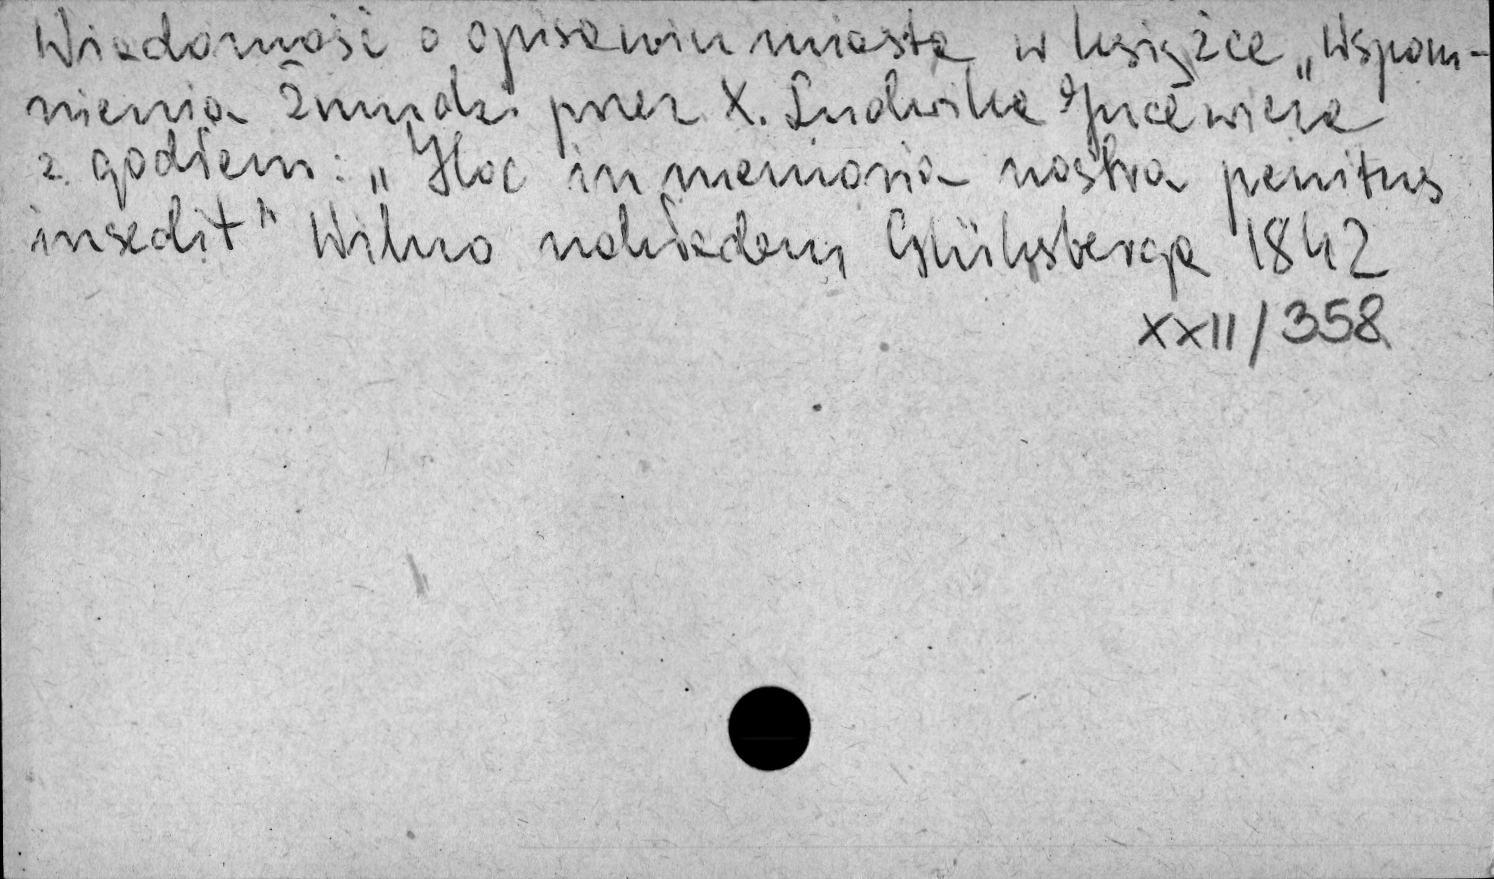 Wiadomość o opisaniu miasta w książce „Wspom-
nienia Żmudzi przez X. Ludwika Jucewicza
z godłem: „Hoc in memoria nostra penitus
insedit" Wilno nakładem Glüksberga 1842
XXII/358